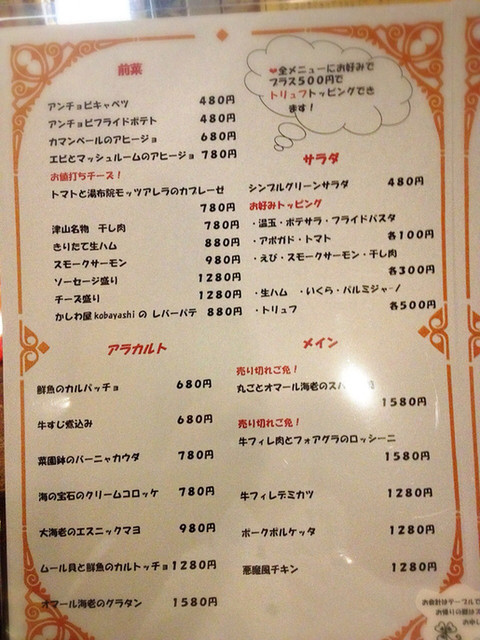 前菜
アンチョビキャベツ 480円
アンチョビフライドポテト 480円
カマンベールのアヒージョ 680円
エビとマッシュルームのアヒージョ 780円
お値打ちチーズ！
トマトと湯布院モッツアレラのカプレーゼ
780円
津山名物 干し肉 780円
きりたて生ハム 880円
スモークサーモン 980円
ソーセージ盛り 1280円
チーズ盛り 1280円
かしわ屋kobayashiの レバーパテ 880円
❤全メニューにお好みで
プラス500円で
トリュフトッピングでき
ます！
サラダ
シンプルグリーンサラダ 480円
お好みトッピング
・温玉・ポテサラ・フライドパスタ
・アボガド・トマト 各100円
・えび・スモークサーモン・干し肉
各300円
・生ハム ・いくら・パルミジャーノ
・トリュフ 各500円
アラカルト
鮮魚のカルパッチョ 680円
牛すじ煮込み 680円
菜園鉢のバーニャカウダ 780円
海の宝石のクリームコロッケ 780円
大海老のエスニックマヨ 980円
ムール貝と鮮魚のカルトッチョ 1280円
オマール海老のグラタン 1580円
メイン
売り切れご免！
丸ごとオマール海老のスパ
1580円
売り切れご免！
牛フィレ肉とフォアグラのロッシーニ
1580円
牛フィレデミカツ 1280円
ポークポルケッタ 1280円
悪魔風チキン 1280円
お会計はテーブルで
お帰りの際は